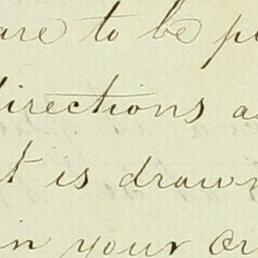 are to be
directions
t is drawn
in your or